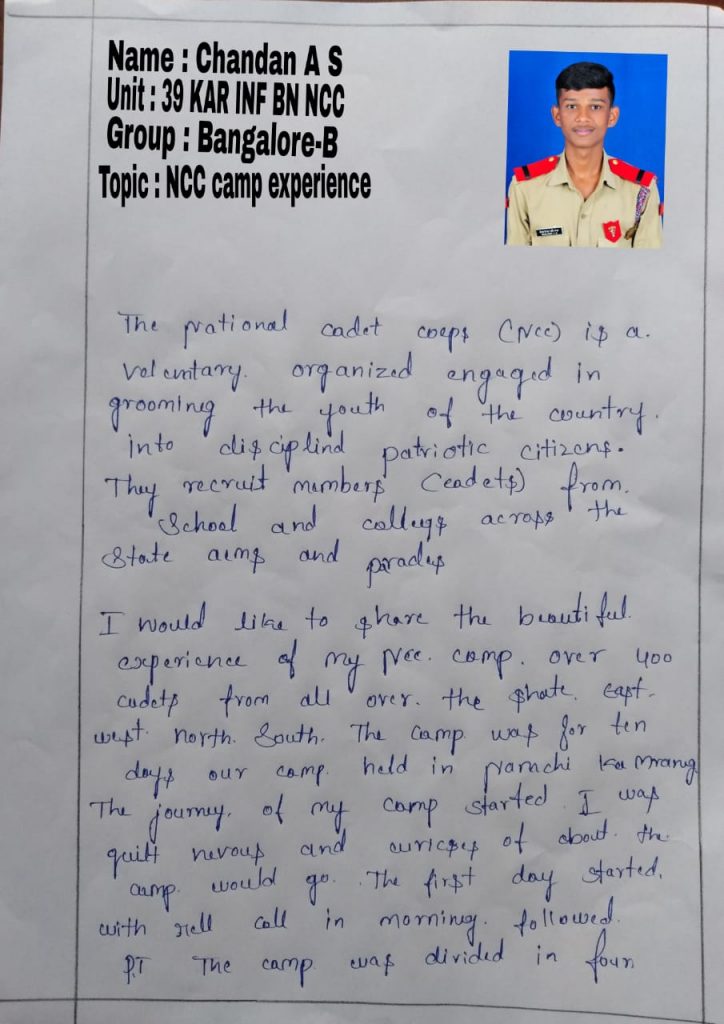 Name : Chandan A S
Unit : 39 KAR INF BN NCC
Group : Bangalore-B
Topic : NCC camp experience
The National cadet coeps (Ncc) is a.
voluntary. organized engaged in
grooming the youth of the country.
into disciplind patriotic citizens.
They recruit members (cadets) from.
School and collegs across the
State aems and paradups
I would like to share the beautiful.
experience of my Ncc. camp. over 400
cadets from all over. the shate. east.
west. north. South. The camp was for ten
days our camp. held in
The journey. of my camp started. I was
quitt nervous and of about. the
camp. would go. The first day started.
with rell call in morning. followed.
P.T The camp. was divided in four